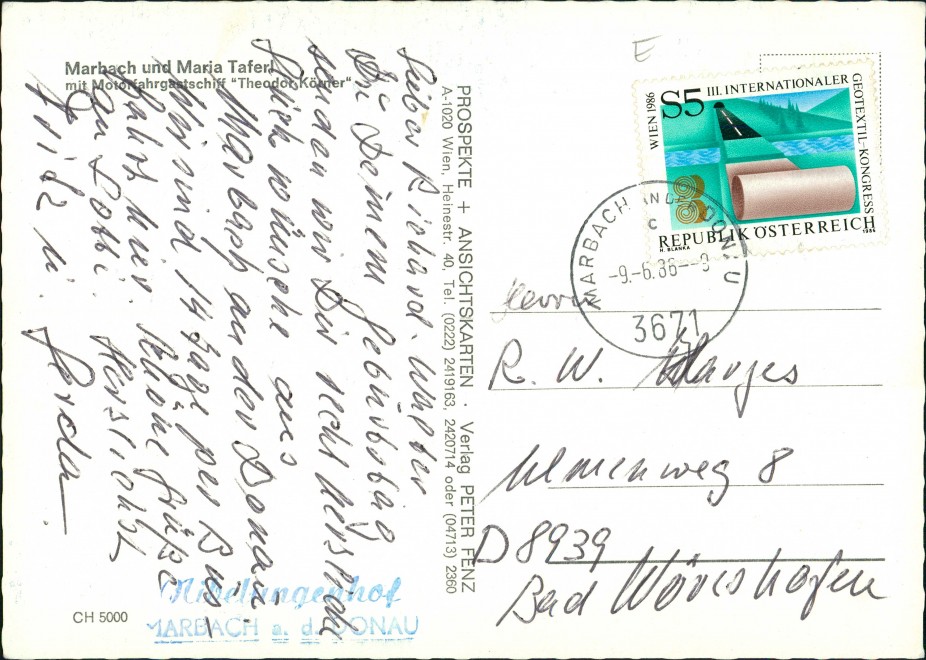 Marbach und Maria Taferl
mit Motorfahrgastschiff "Theodor Körner"
Lieber Richard. Unter
Dir Deinem Geburtstag
senden wir Dir recht herzliche
Dich wünsche aus
Marbach an der Donau.
Wir sind 14 Tage per Bus
hier. Schöne Grüße
an Lotti. Herzlichst
Frida u. Gerda
PROSPEKTE + ANSICHTSKARTEN · Verlag PETER FENZ
A-1020 Wien, Heinestr. 40, Tel. (0222) 2419163, 2420714 oder (04713) 2360
CH 5000
Nibelungenhof
MARBACH a. d. DONAU
E
WIEN 1986
S5
III. INTERNATIONALER
GEOTEXTIL-KONGRESS
REPUBLIK ÖSTERREICH
H. BLANKA
1986
MARBACH AN DER DONAU
C
-9.-6.86--9
3671
Herrn
R. W. Klarges
Ulmenweg 8
D 8939
Bad Wörishofen